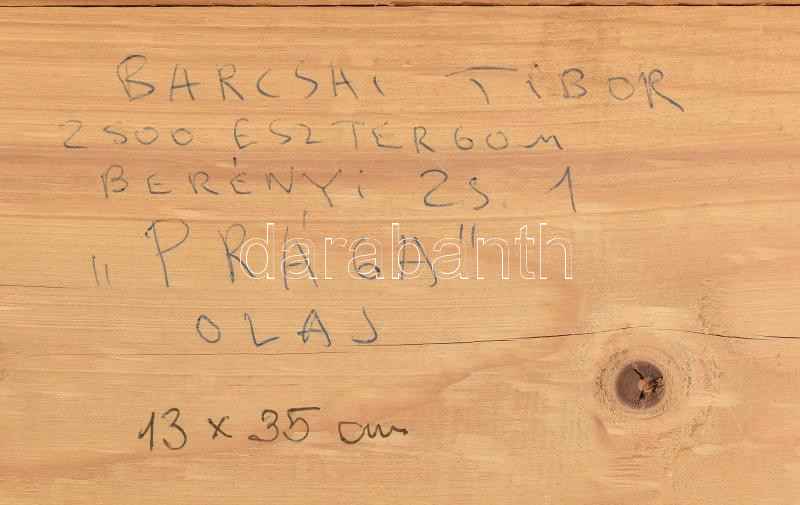 BARCSAI TIBOR
2500 ESZTERGOM
BERÉNYI ZS. 1
„PRÁGA”
darabanth
OLAJ
13 x 35 cm